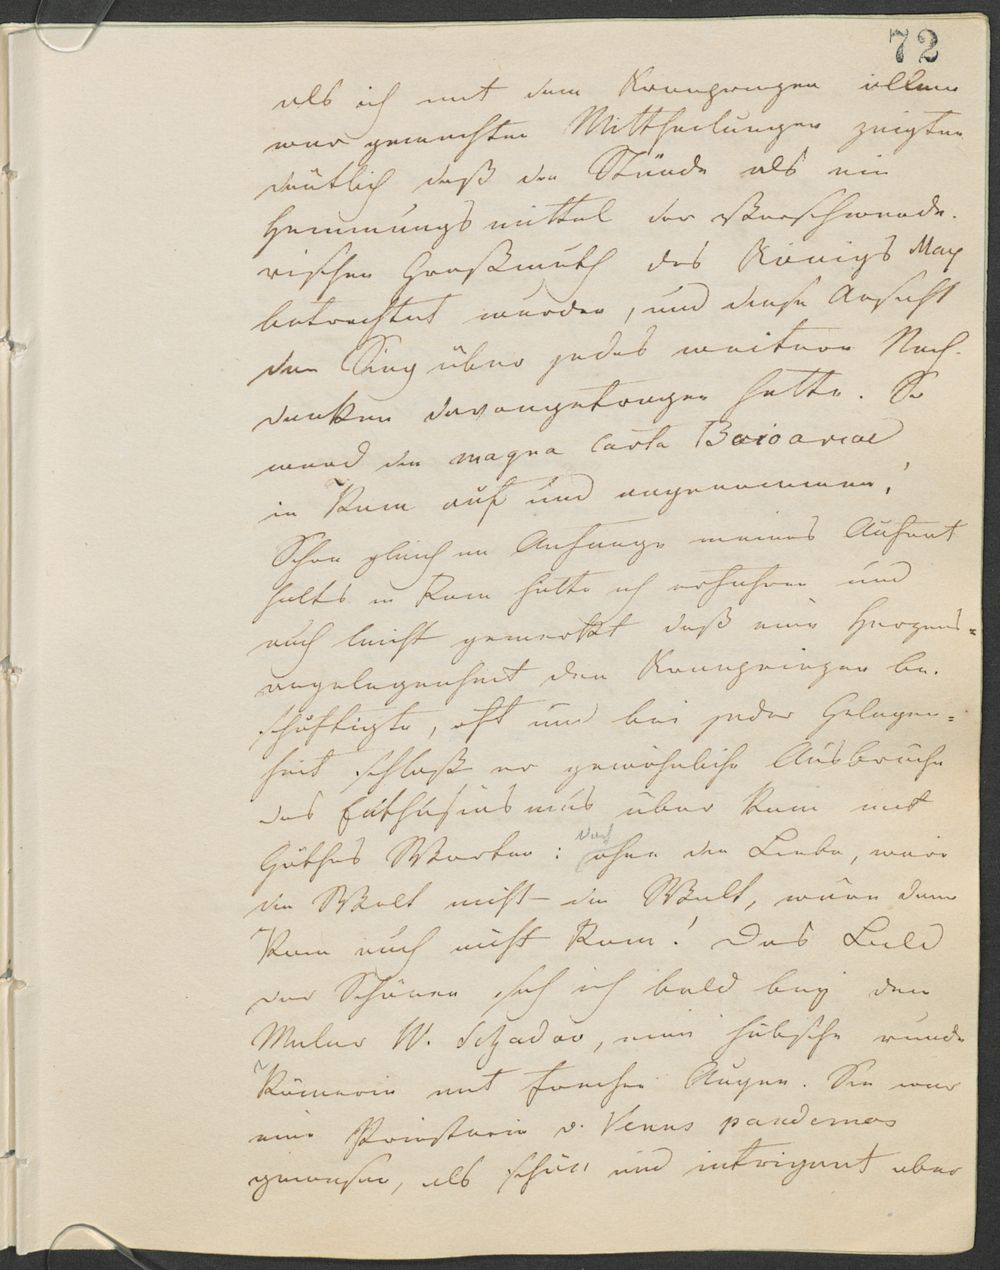 72
als ich mit dem Kronprinzen allein
war gemachten Mittheilungen zeigten
deutlich daß die Stände als ein
Hemmungsmittel der verschwende-
rischen Großmuth des Königs Max
betrachtet wurden, und diese Ansicht
den Sieg über jedes weitere Nach-
denken davongetragen hatte. So
ward die magna Carta Baioariae
in Rom auf und angenommen!
Schon gleich im Anfange meines Aufent
halts in Rom hatte ich erfahren und
auch leicht gemerkt daß eine Herzens=
angelegenheit den Kronprinzen be-
schäftigte, oft und bei jeder Gelegen=
heit schloß er gewöhnlich Ausbrüche
des Enthusiasmus über Rom mit
Göthes Worten: doch ohne die Liebe, wäre
die Welt nicht die Welt, wäre denn
Rom auch nicht Rom! Das Bild
der Schönen sah ich bald bey dem
Maler W. Schadow, eine hübsche runde
Römerin mit Augen. Sie war
eine Priesterin d. Venus pandemos
gewesen, als schön und intrigant aber